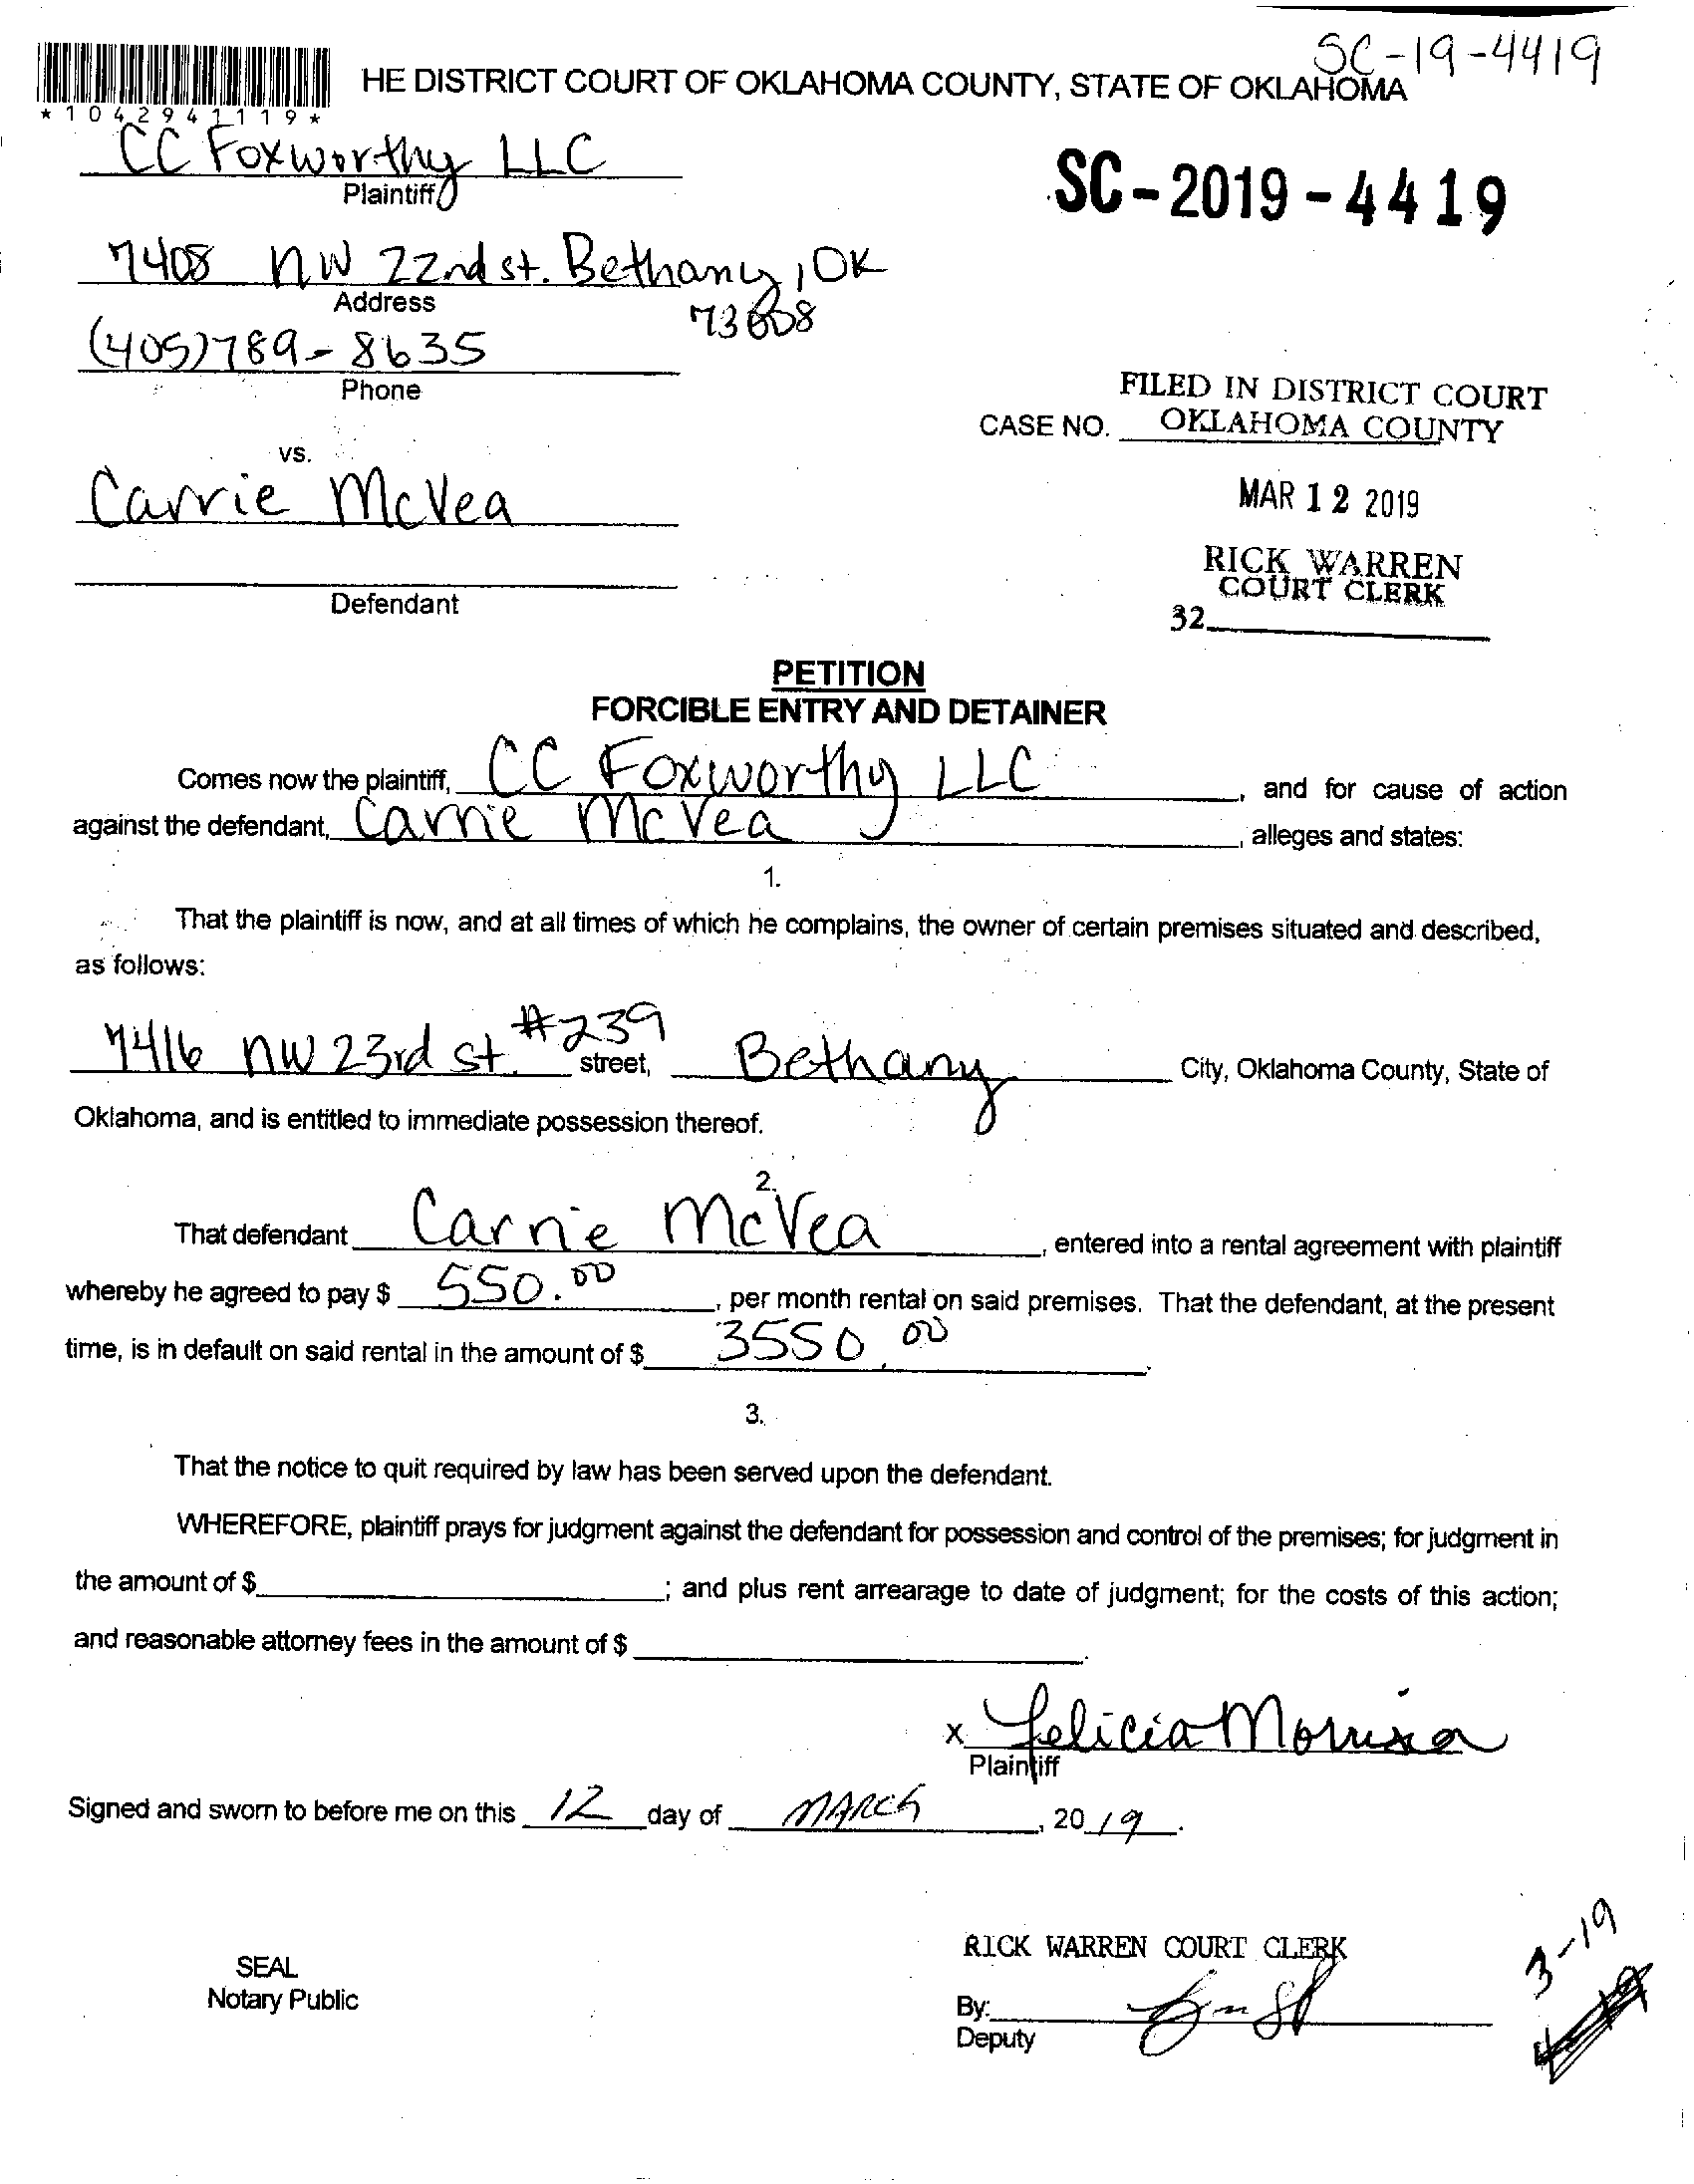 SC-19-4419
HE DISTRICT COURT OF OKLAHOMA COUNTY, STATE OF OKLAHOMA
*1042941119*
CC Foxworthy LLC
Plaintiff
SC-2019-4419
7408 NW 22nd st. Bethany, OK
Address
73008
(405)789-8635
Phone
FILED IN DISTRICT COURT
CASE NO. OKLAHOMA COUNTY
vs.
MAR 12 2019
Carrie McVea
RICK WARREN
COURT CLERK
Defendant
32
PETITION
FORCIBLE ENTRY AND DETAINER
Comes now the plaintiff, CC Foxworthy LLC, and for cause of action
against the defendant, Carrie McVea, alleges and states:
1.
That the plaintiff is now, and at all times of which he complains, the owner of certain premises situated and described,
as follows:
7416 NW 23rd st. #239 street, Bethany City, Oklahoma County, State of
Oklahoma, and is entitled to immediate possession thereof.
2.
That defendant Carrie McVea, entered into a rental agreement with plaintiff
whereby he agreed to pay $ 550.00, per month rental on said premises. That the defendant, at the present
time, is in default on said rental in the amount of $ 3550.00.
3.
That the notice to quit required by law has been served upon the defendant.
WHEREFORE, plaintiff prays for judgment against the defendant for possession and control of the premises; for judgment in
the amount of $ ; and plus rent arrearage to date of judgment; for the costs of this action;
and reasonable attorney fees in the amount of $ .
x Felicia Morrison
Plaintiff
Signed and sworn to before me on this 12 day of MARCH, 2019.
3-19
RICK WARREN COURT CLERK
SEAL
Notary Public
By:
Deputy